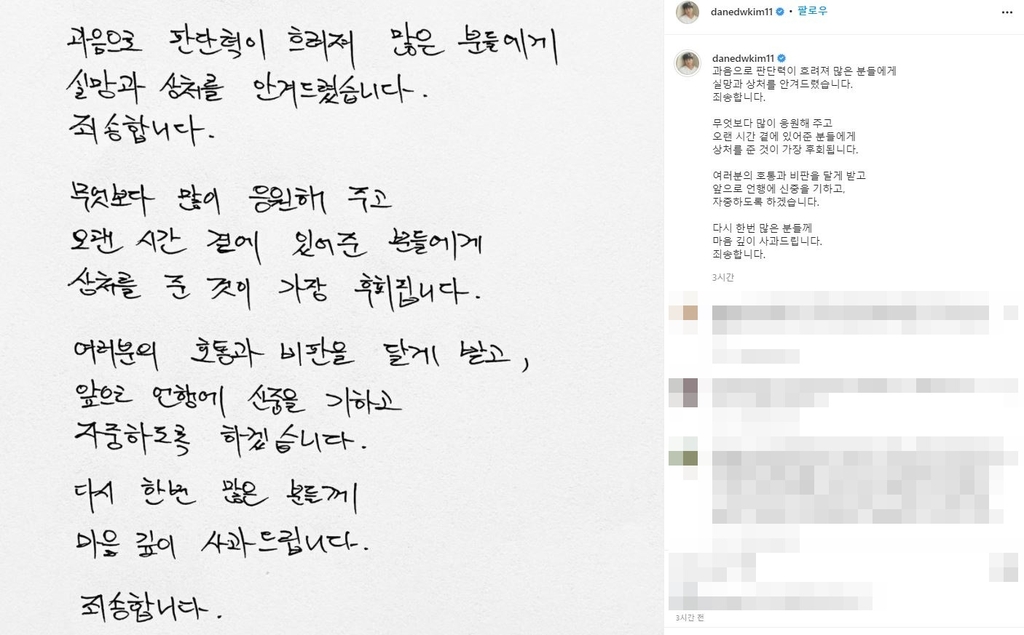 과음으로 판단력이 흐려져 많은 분들에게
실망과 상처를 안겨드렸습니다.
죄송합니다.
무엇보다 많이 응원해 주고
오랜 시간 곁에 있어준 분들에게
상처를 준 것이 가장 후회됩니다.
여러분의 호통과 비판을 달게 받고,
앞으로 언행에 신중을 기하고
자중하도록 하겠습니다.
다시 한번 많은 분들께
마음 깊이 사과드립니다.
죄송합니다.
danedwkim11 • 팔로우
danedwkim11
과음으로 판단력이 흐려져 많은 분들에게
실망과 상처를 안겨드렸습니다.
죄송합니다.
무엇보다 많이 응원해 주고
오랜 시간 곁에 있어준 분들에게
상처를 준 것이 가장 후회됩니다.
여러분의 호통과 비판을 달게 받고
앞으로 언행에 신중을 기하고,
자중하도록 하겠습니다.
다시 한번 많은 분들께
마음 깊이 사과드립니다.
죄송합니다.
3시간
3시간 전